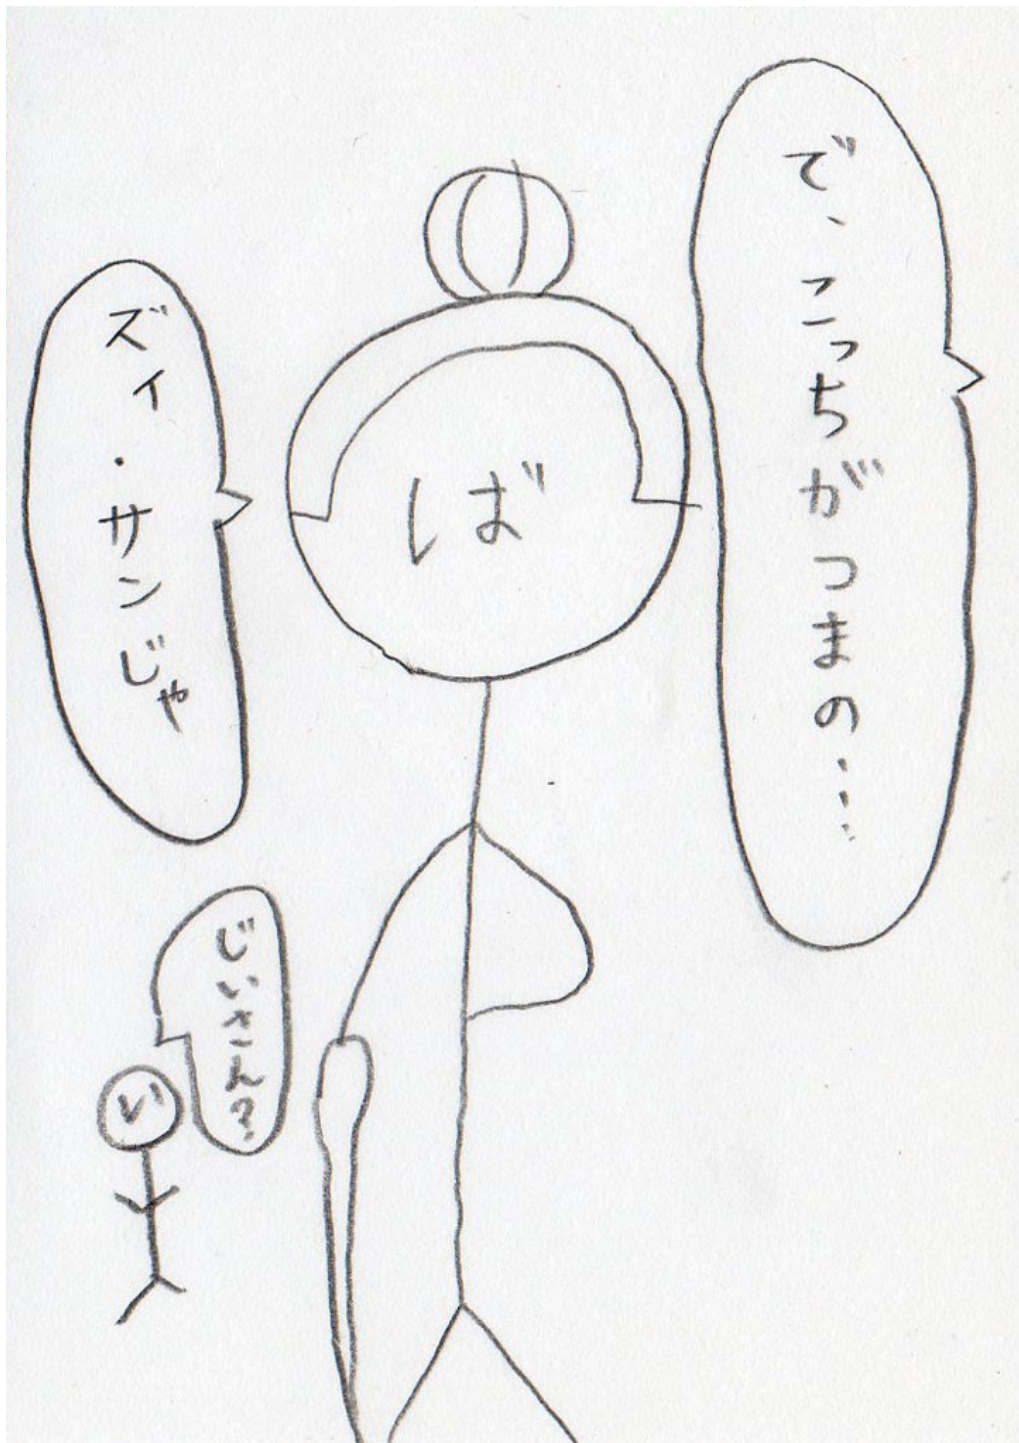 で、こっちがつまの…
ば
ズィ・サンじゃ
じいさん?
い